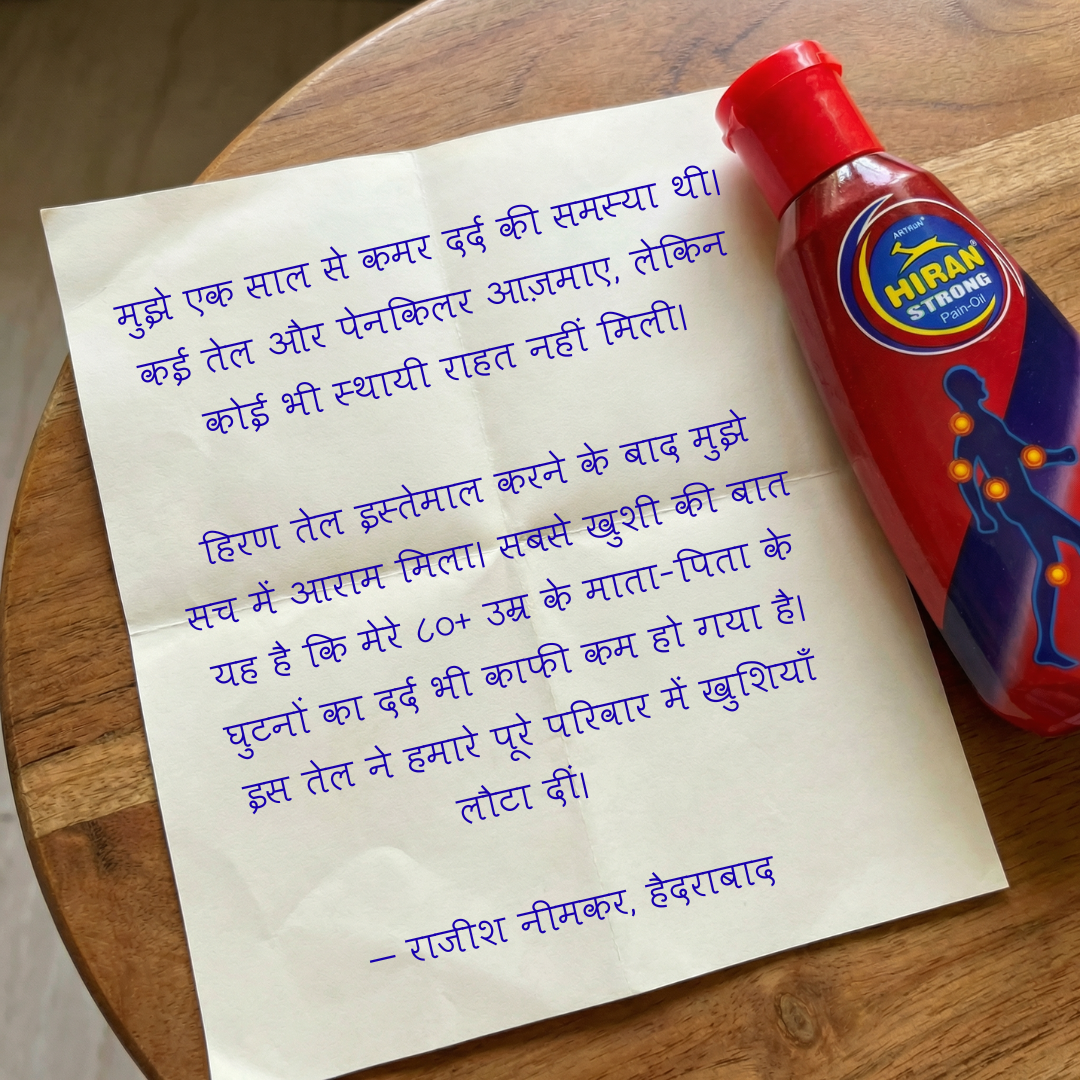 मुझे एक साल से कमर दर्द की समस्या थी।
कई तेल और पेनकिलर आज़माए, लेकिन
कोई भी स्थायी राहत नहीं मिली।
हिरण तेल इस्तेमाल करने के बाद मुझे
सच में आराम मिला। सबसे खुशी की बात
यह है कि मेरे ८०+ उम्र के माता-पिता के
घुटनों का दर्द भी काफी कम हो गया है।
इस तेल ने हमारे पूरे परिवार में खुशियाँ
लौटा दीं।
— राजीश नीमकर, हैदराबाद
ARTRON®
HIRAN®
STRONG
Pain-Oil